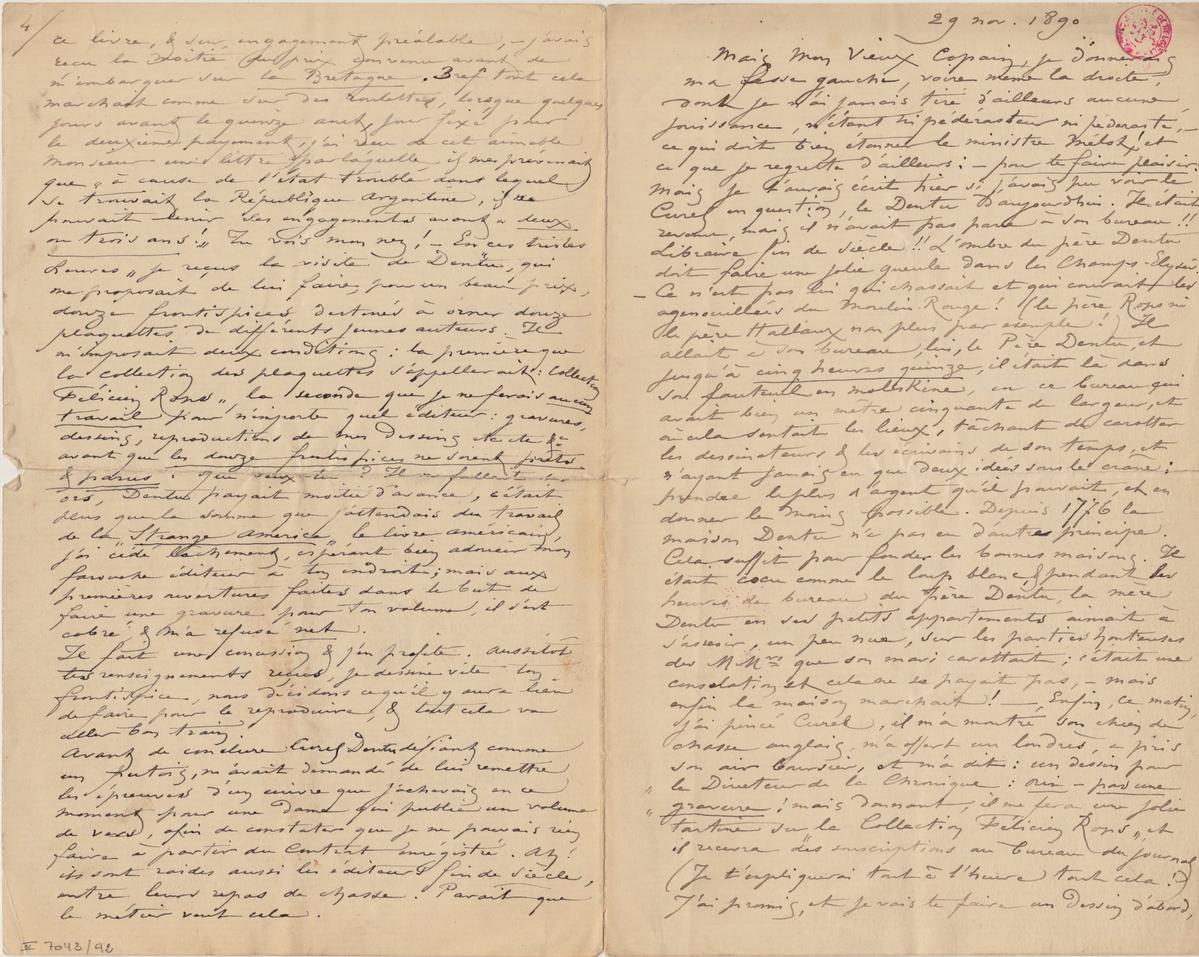 4/
ce livre, & sur engagement préalable, – j'avais
reçu la moitié du prix convenu avant de
m'embarquer sur la Bretagne. Bref tout cela
marchait comme sur des roulettes, lorsque quelques
jours avant le quinze août, jour fixé pour
le deuxième payement, j'ai reçu de cet aimable
Monsieur une lettre par laquelle il me prévenait
que „ à cause de l'état troublé dans lequel
se trouvait la République Argentine, il ne
pouvait tenir ses engagements avant deux
ou trois ans! „ Tu vois mon nez! – En ces tristes
heures „ je reçus la visite de Dentu, qui
me proposait de lui faire, pour un beau prix,
douze frontispices destinés à orner douze
plaquettes de différents jeunes auteurs. Il
m'imposait deux conditions : la première que
la collection des plaquettes s'appellerait : Collection
Félicien Rops „, la seconde que je ne ferais aucun
travail pour n'importe quel éditeur : gravures,
dessins, reproductions de mes dessins etc etc &c
avant que les douze frontispices ne soient prêts
& parus. Que veux-tu? Il me fallait
Dentu payait moitié d'avance, c'était
plus que la somme que j'attendais du travail
de la „ Strange America „ le livre américain,
j'ai cédé lâchement, espérant bien adoucir mon
farouche éditeur à ton endroit; mais aux
premières ouvertures faites dans le but de
faire une gravure pour ton volume, il s'est
cabré, & m'a refusé net.
Il fait une concession & j'en profite. Aussitôt
tes renseignements reçus, je dessine vite ton
frontispice, nous décidons ce qu'il y aura lieu
de faire pour le reproduire, & tout cela va
aller bon train.
Avant de conclure Curel Dentu défiant comme
un putois, m'avait demandé de lui remettre
les épreuves d'un cuivre que j'achevais en ce
moment pour une Dame qui publie un volume
de vers, afin de constater que je ne pouvais rien
faire à partir du Contrat enregistré. Ah!
ils sont raides aussi les éditeurs fin de siècle,
entre leurs repas de chasse. Paraît que
le métier veut cela.
II 7043/92
29 nov. 1890
Mais Mon Vieux Copain, je donnerais
ma fesse gauche, voire même la droite,
dont je n'ai jamais tiré d'ailleurs aucune
jouissance, n'étant ni péderaste ni pédéraste,
ce qui doit bien étonner le ministre Melot! et
ce que je regrette d'ailleurs : – pour te faire plaisir.
Mais je t'aurais écrit hier si j'avais pu voir le
Curel en question, le Dentu d'aujourd'hui. Il était
revenu, mais il n'avait pas paru à son bureau!!
Libraire fin de siècle!! L'ombre du père Dentu
doit faire une jolie gueule dans les Champs-Elysées
– Ce n'est pas lui qui chassait et qui courait les
agenouillées du Moulin Rouge! (le père Rops ni
le père Hallaux non plus par exemple!) Il
allait à son bureau, lui, le Père Dentu, et
jusqu'à cinq heures quinze, il était là dans
son fauteuil en moleskine, en ce bureau qui
avait bien un mètre cinquante de largeur, et
où cela sentait les lieux, tâchant de carotter
les dessinateurs & les écrivains de son temps, et
n'ayant jamais eu que deux idées sous le crâne :
prendre le plus d'argent qu'il pouvait, et en
donner le moins possible. Depuis 1776 la
maison Dentu n'a pas eu d'autre principe.
Cela suffit pour fonder les bonnes maisons. Il
était cocu comme le loup blanc & pendant les
heures de bureau du père Dentu, la mère
Dentu en ses petits appartements aimait à
s'asseoir, un peu nue, sur les parties honteuses
des MMrs que son mari carottait; c'était une
consolation et cela ne se payait pas, – mais
enfin la maison marchait! – Enfin, ce matin,
j'ai pincé Curel, il m'a montré son chien de
chasse anglais, m'a offert un londrès, a pris
son air boursier, et m'a dit : un dessin pour
„ le Directeur de la Chronique : oui – pas une
„ gravure; mais donnant, il me fera une jolie
tartine sur la Collection Félicien Rops „, et
il recevra des souscriptions au bureau du journal
(Je t'expliquerai tout à l'heure tout cela!)
J'ai promis, et je vais te faire un Dessin d'abord,